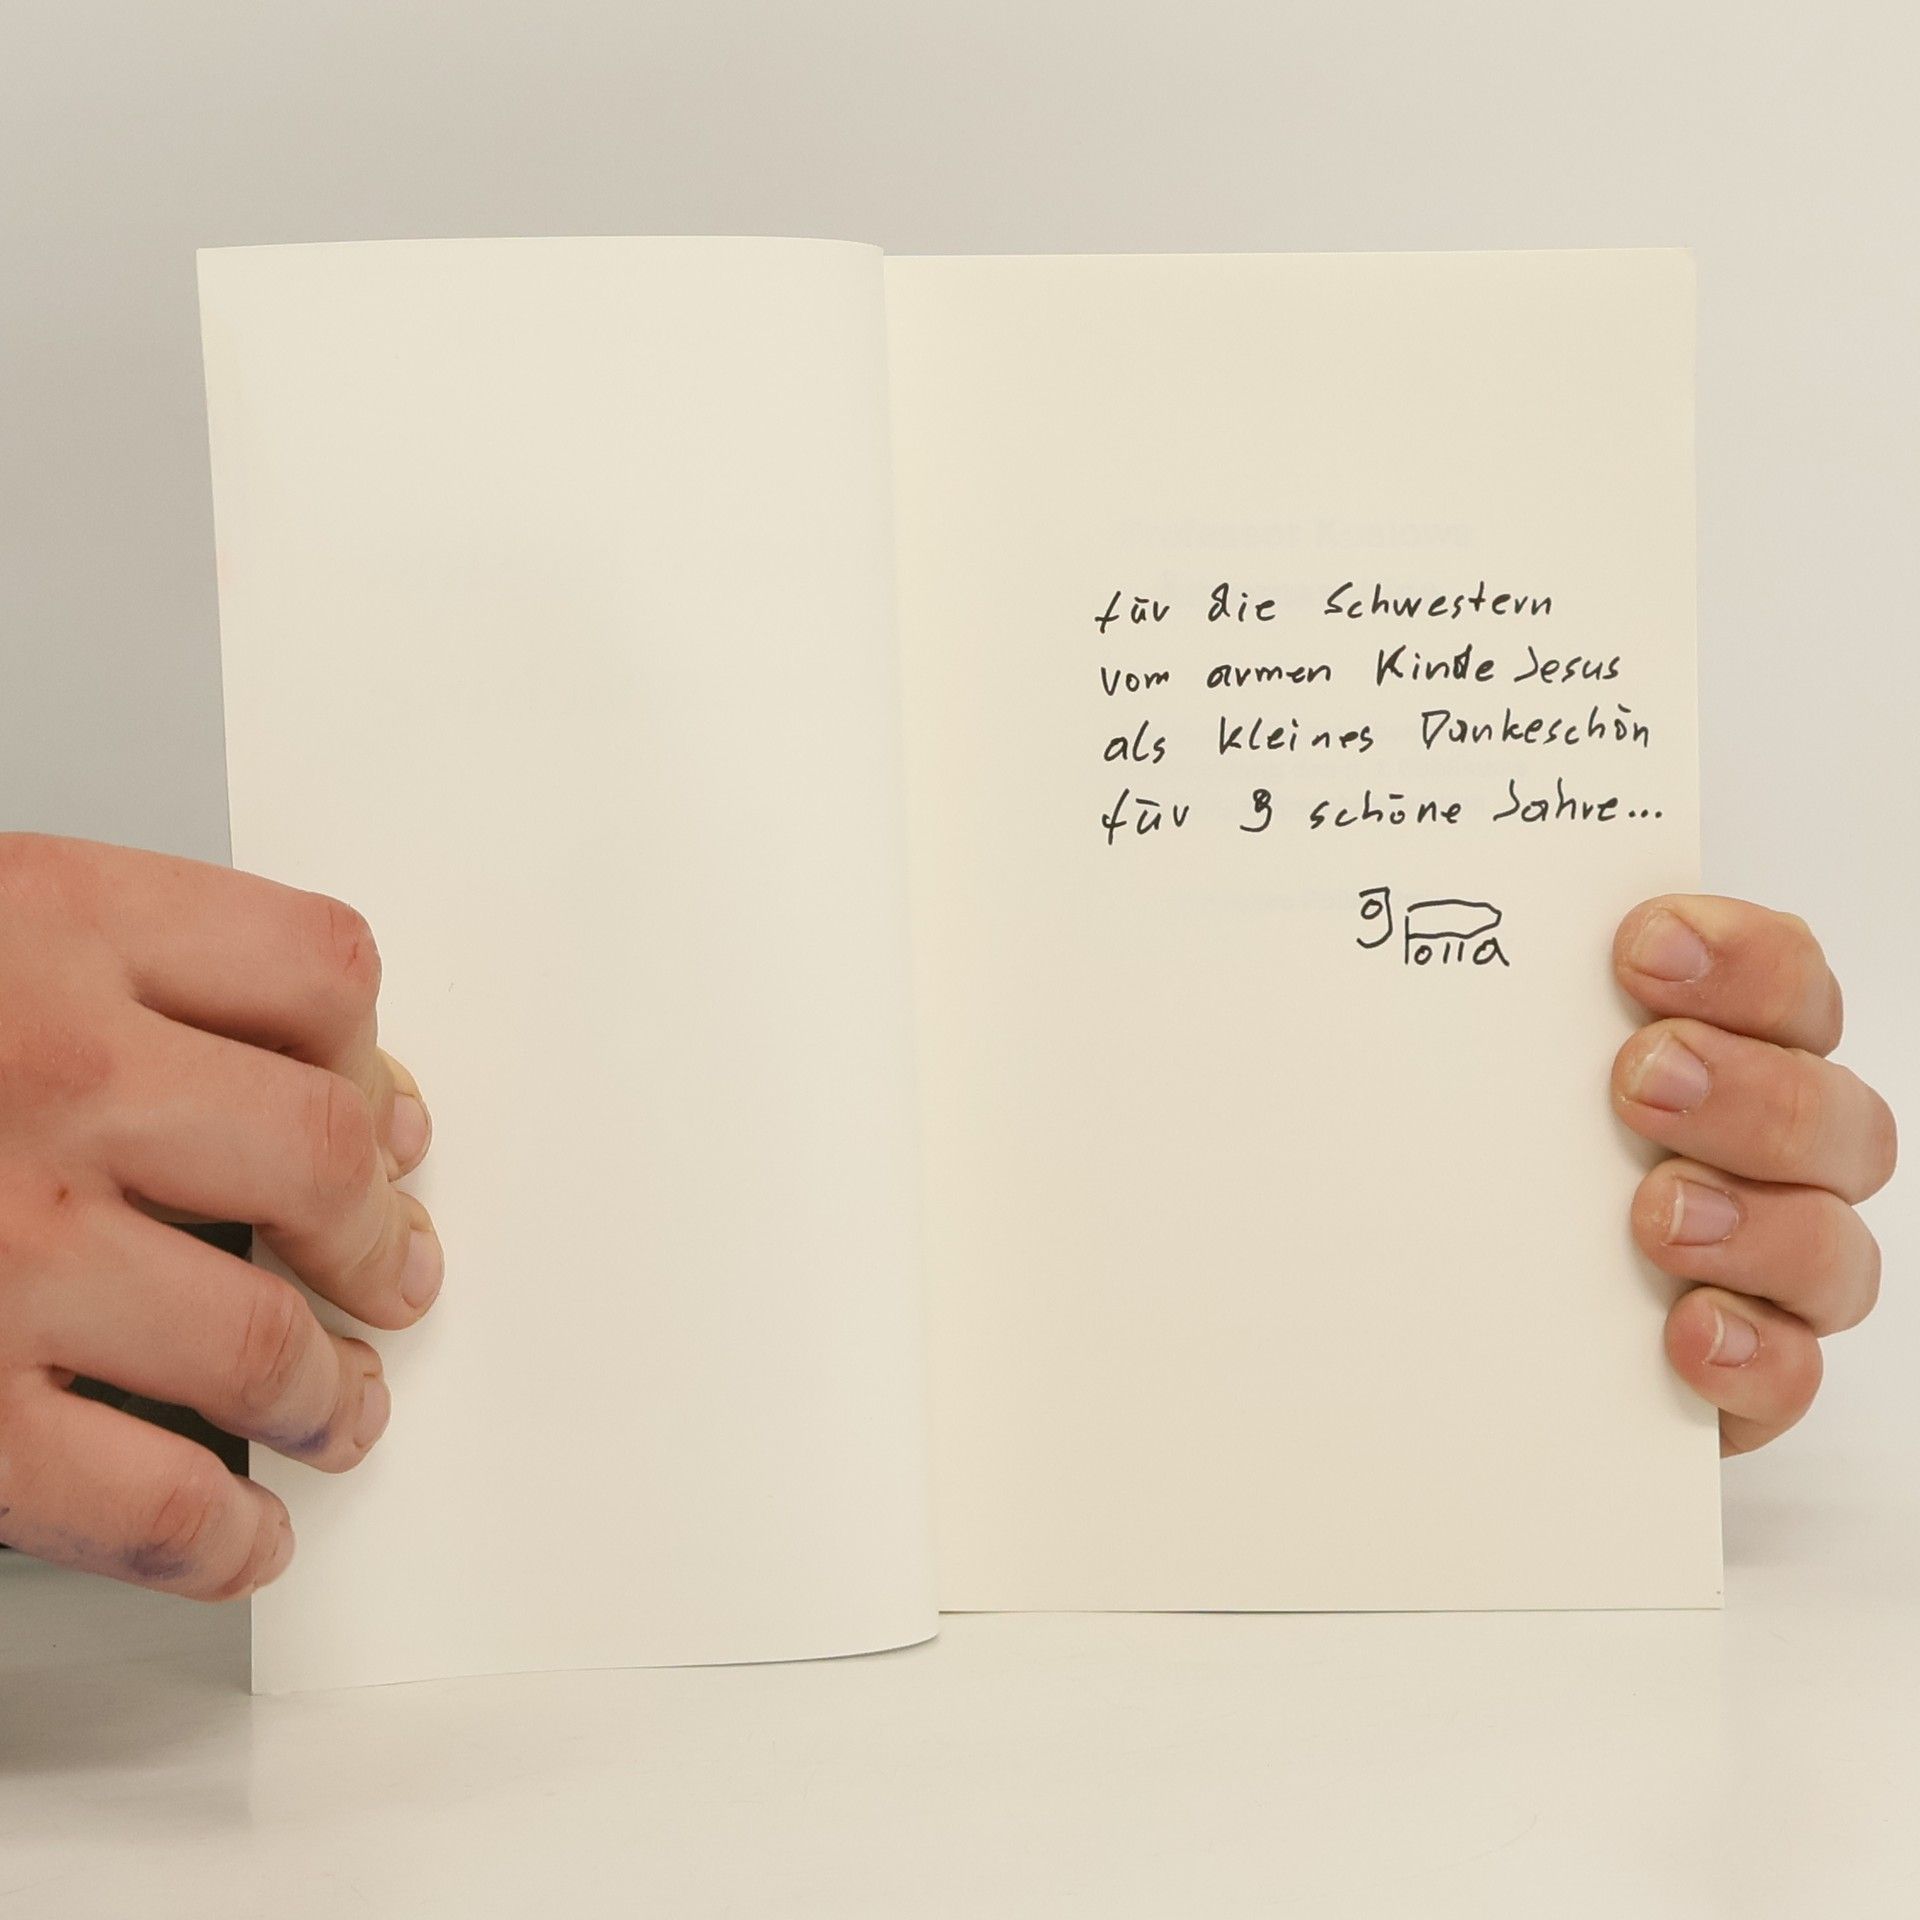 für die Schwestern
vom armen Kinde Jesus
als kleines Dankeschön
für 9 schöne Jahre...